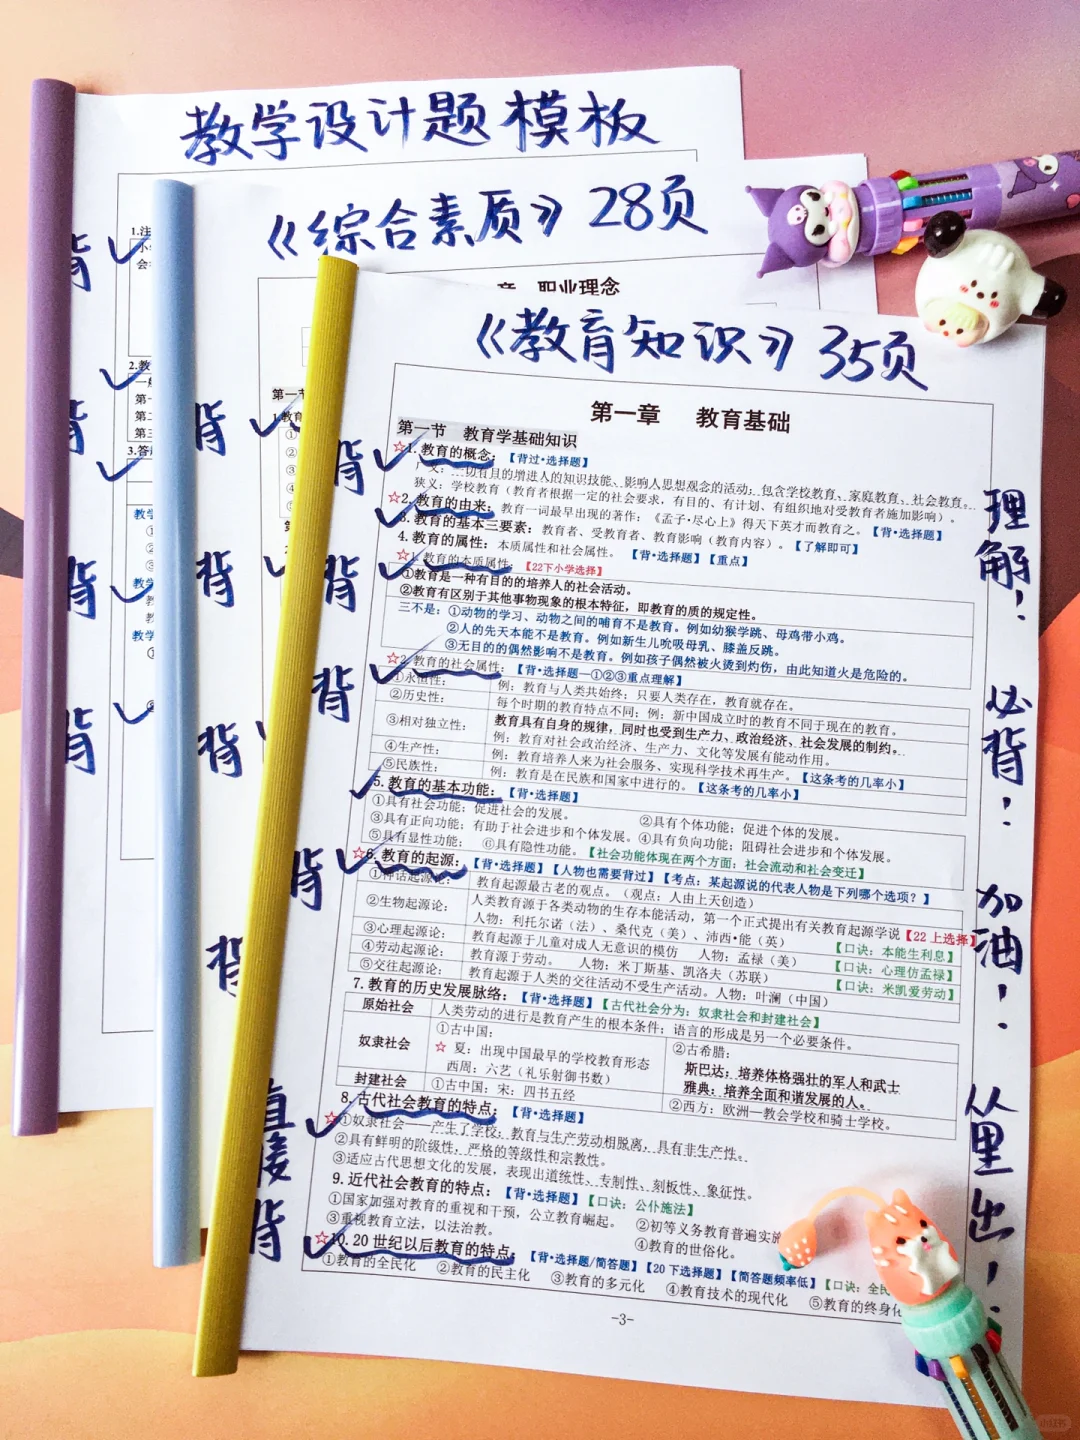 教学设计题模板
《综合素质》28页
职业理念
《教育知识》35页
第一章 教育基础
第一节 教育学基础知识
☆1.教育的概念：【背过•选择题】
广义：一切有目的增进人的知识技能、影响人思想观念的活动；包含学校教育、家庭教育、社会教育。
狭义：学校教育（教育者根据一定的社会要求，有目的、有计划、有组织地对受教育者施加影响）。
☆2.教育的由来：教育一词最早出现的著作：《孟子•尽心上》得天下英才而教育之。【背•选择题】
3.教育的基本三要素：教育者、受教育者、教育影响（教育内容）。【了解即可】
4.教育的属性：本质属性和社会属性。【背•选择题】【重点】
☆1.教育的本质属性：【22下小学选择】
①教育是一种有目的的培养人的社会活动。
②教育有区别于其他事物现象的根本特征，即教育的质的规定性。
三不是：①动物的学习、动物之间的哺育不是教育。例如幼猴学跳、母鸡带小鸡。
②人的先天本能不是教育。例如新生儿吮吸母乳、膝盖反跳。
③无目的的偶然影响不是教育。例如孩子偶然被火烫到灼伤，由此知道火是危险的。
☆2.教育的社会属性：【背•选择题—①②③重点理解】
①永恒性： 例：教育与人类共始终；只要人类存在，教育就存在。
②历史性： 每个时期的教育特点不同；例：新中国成立时的教育不同于现在的教育。
③相对独立性： 教育具有自身的规律，同时也受到生产力、政治经济、社会发展的制约。
例：教育对社会政治经济、生产力、文化等发展有能动作用。
④生产性： 例：教育培养人来为社会服务、实现科学技术再生产。【这条考的几率小】
⑤民族性： 例：教育是在民族和国家中进行的。【这条考的几率小】
5.教育的基本功能：【背•选择题】
①具有社会功能；促进社会的发展。 ②具有个体功能；促进个体的发展。
③具有正向功能；有助于社会进步和个体发展。④具有负向功能；阻碍社会进步和个体发展。
⑤具有显性功能。 ⑥具有隐性功能。【社会功能体现在两个方面：社会流动和社会变迁】
☆6.教育的起源：【背•选择题】【人物也需要背过】【考点：某起源说的代表人物是下列哪个选项？】
①神话起源论： 教育起源最古老的观点。（观点：人由上天创造）
②生物起源论： 人类教育源于各类动物的生存本能活动，第一个正式提出有关教育起源学说【22上选择】
人物：利托尔诺（法）、桑代克（美）、沛西•能（英） 【口诀：本能生利息】
③心理起源论： 教育起源于儿童对成人无意识的模仿 人物：孟禄（美） 【口诀：心理仿孟禄】
④劳动起源论： 教育源于劳动。 人物：米丁斯基、凯洛夫（苏联） 【口诀：米凯爱劳动】
⑤交往起源论： 教育起源于人类的交往活动不受生产活动。人物：叶澜（中国）
7.教育的历史发展脉络：【背•选择题】【古代社会分为：奴隶社会和封建社会】
原始社会 人类劳动的进行是教育产生的根本条件；语言的形成是另一个必要条件。
奴隶社会 ①古中国： ②古希腊：
☆ 夏：出现中国最早的学校教育形态 斯巴达：培养体格强壮的军人和武士
西周：六艺（礼乐射御书数） 雅典：培养全面和谐发展的人。
封建社会 ①古中国：宋：四书五经 ②西方：欧洲—教会学校和骑士学校。
8.古代社会教育的特点：【背•选择题】
☆①奴隶社会——产生了学校；教育与生产劳动相脱离，具有非生产性。
②具有鲜明的阶级性，严格的等级性和宗教性。
③适应古代思想文化的发展，表现出道统性、专制性、刻板性、象征性。
9.近代社会教育的特点：【背•选择题】【口诀：公仆施法】
①国家加强对教育的重视和干预，公立教育崛起。 ②初等义务教育普遍实施
③重视教育立法，以法治教。 ④教育的世俗化。
☆10.20世纪以后教育的特点：【背•选择题/简答题】【20下选择题】【简答题频率低】【口诀：全民
①教育的全民化 ②教育的民主化 ③教育的多元化 ④教育技术的现代化 ⑤教育的终身化
-3-
背
背
背
背
背
背
背
背
背
背
背
背
背
直接背
理解！
必背！
加油！
从里出！
小红书